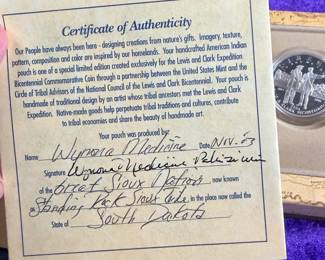 Certificate of Authenticity
Our People have always been here - designing creations from nature's gifts. Imagery, texture,
pattern, composition and color are inspired by our homelands. Your handcrafted American Indian
pouch is one of a special limited edition created exclusively for the Lewis and Clark Expedition
Bicentennial Commemorative Coin through a partnership between the United States Mint and the
Circle of Tribal Advisors of the National Council of the Lewis and Clark Bicentennial. Your pouch is
handmade of traditional design by an artist whose tribal ancestors met the Lewis and Clark
Expedition. Native-made goods help perpetuate tribal traditions and cultures, contribute
to tribal economies and share the beauty of handmade art.
Your pouch was produced by:
Name Wynona Medicine Date Nov. 03
Signature Wynona Medicine
of the Great Sioux Nation now known
as Standing Rock Sioux, in the place now called the
State of South Dakota